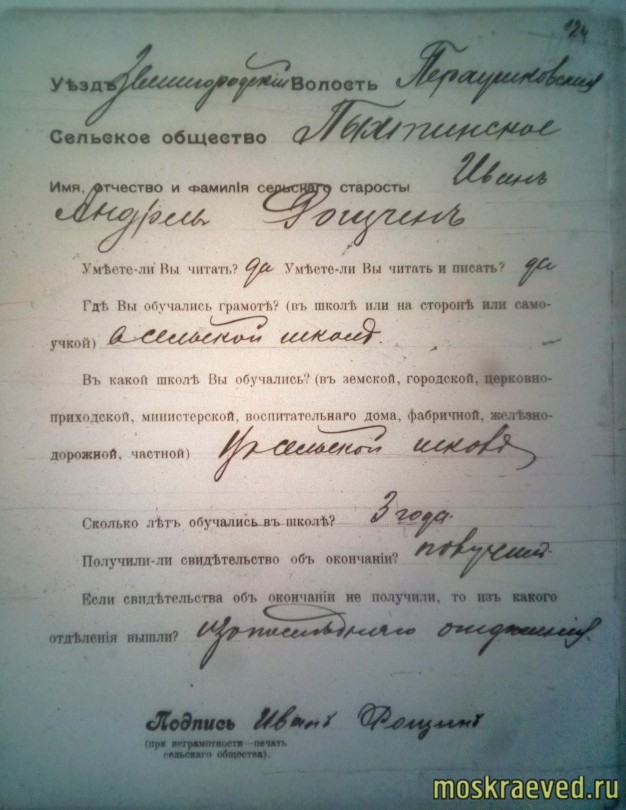 124
Уѣздъ Звенигородскій Волость Перхушковская
Сельское общество Пыхтинское
Имя, отчество и фамилія сельскаго старосты Иванъ
Андреевъ Рощинъ
Умѣете-ли Вы читать? да Умѣете-ли Вы читать и писать? да
Гдѣ Вы обучались грамотѣ? (въ школѣ или на сторонѣ или само-
учкой) в сельской школѣ.
Въ какой школѣ Вы обучались? (въ земской, городской, церковно-
приходской, министерской, воспитательнаго дома, фабричной, желѣзно-
дорожной, частной) сельской школѣ
Сколько лѣтъ обучались въ школѣ? 3 года.
Получили-ли свидѣтельство объ окончаніи? получил
Если свидѣтельства объ окончаніи не получили, то изъ какого
отдѣленія вышли?
Подпись Иванъ Рощинъ
(при неграмотности—печать
сельскаго общества).
moskraeved.ru